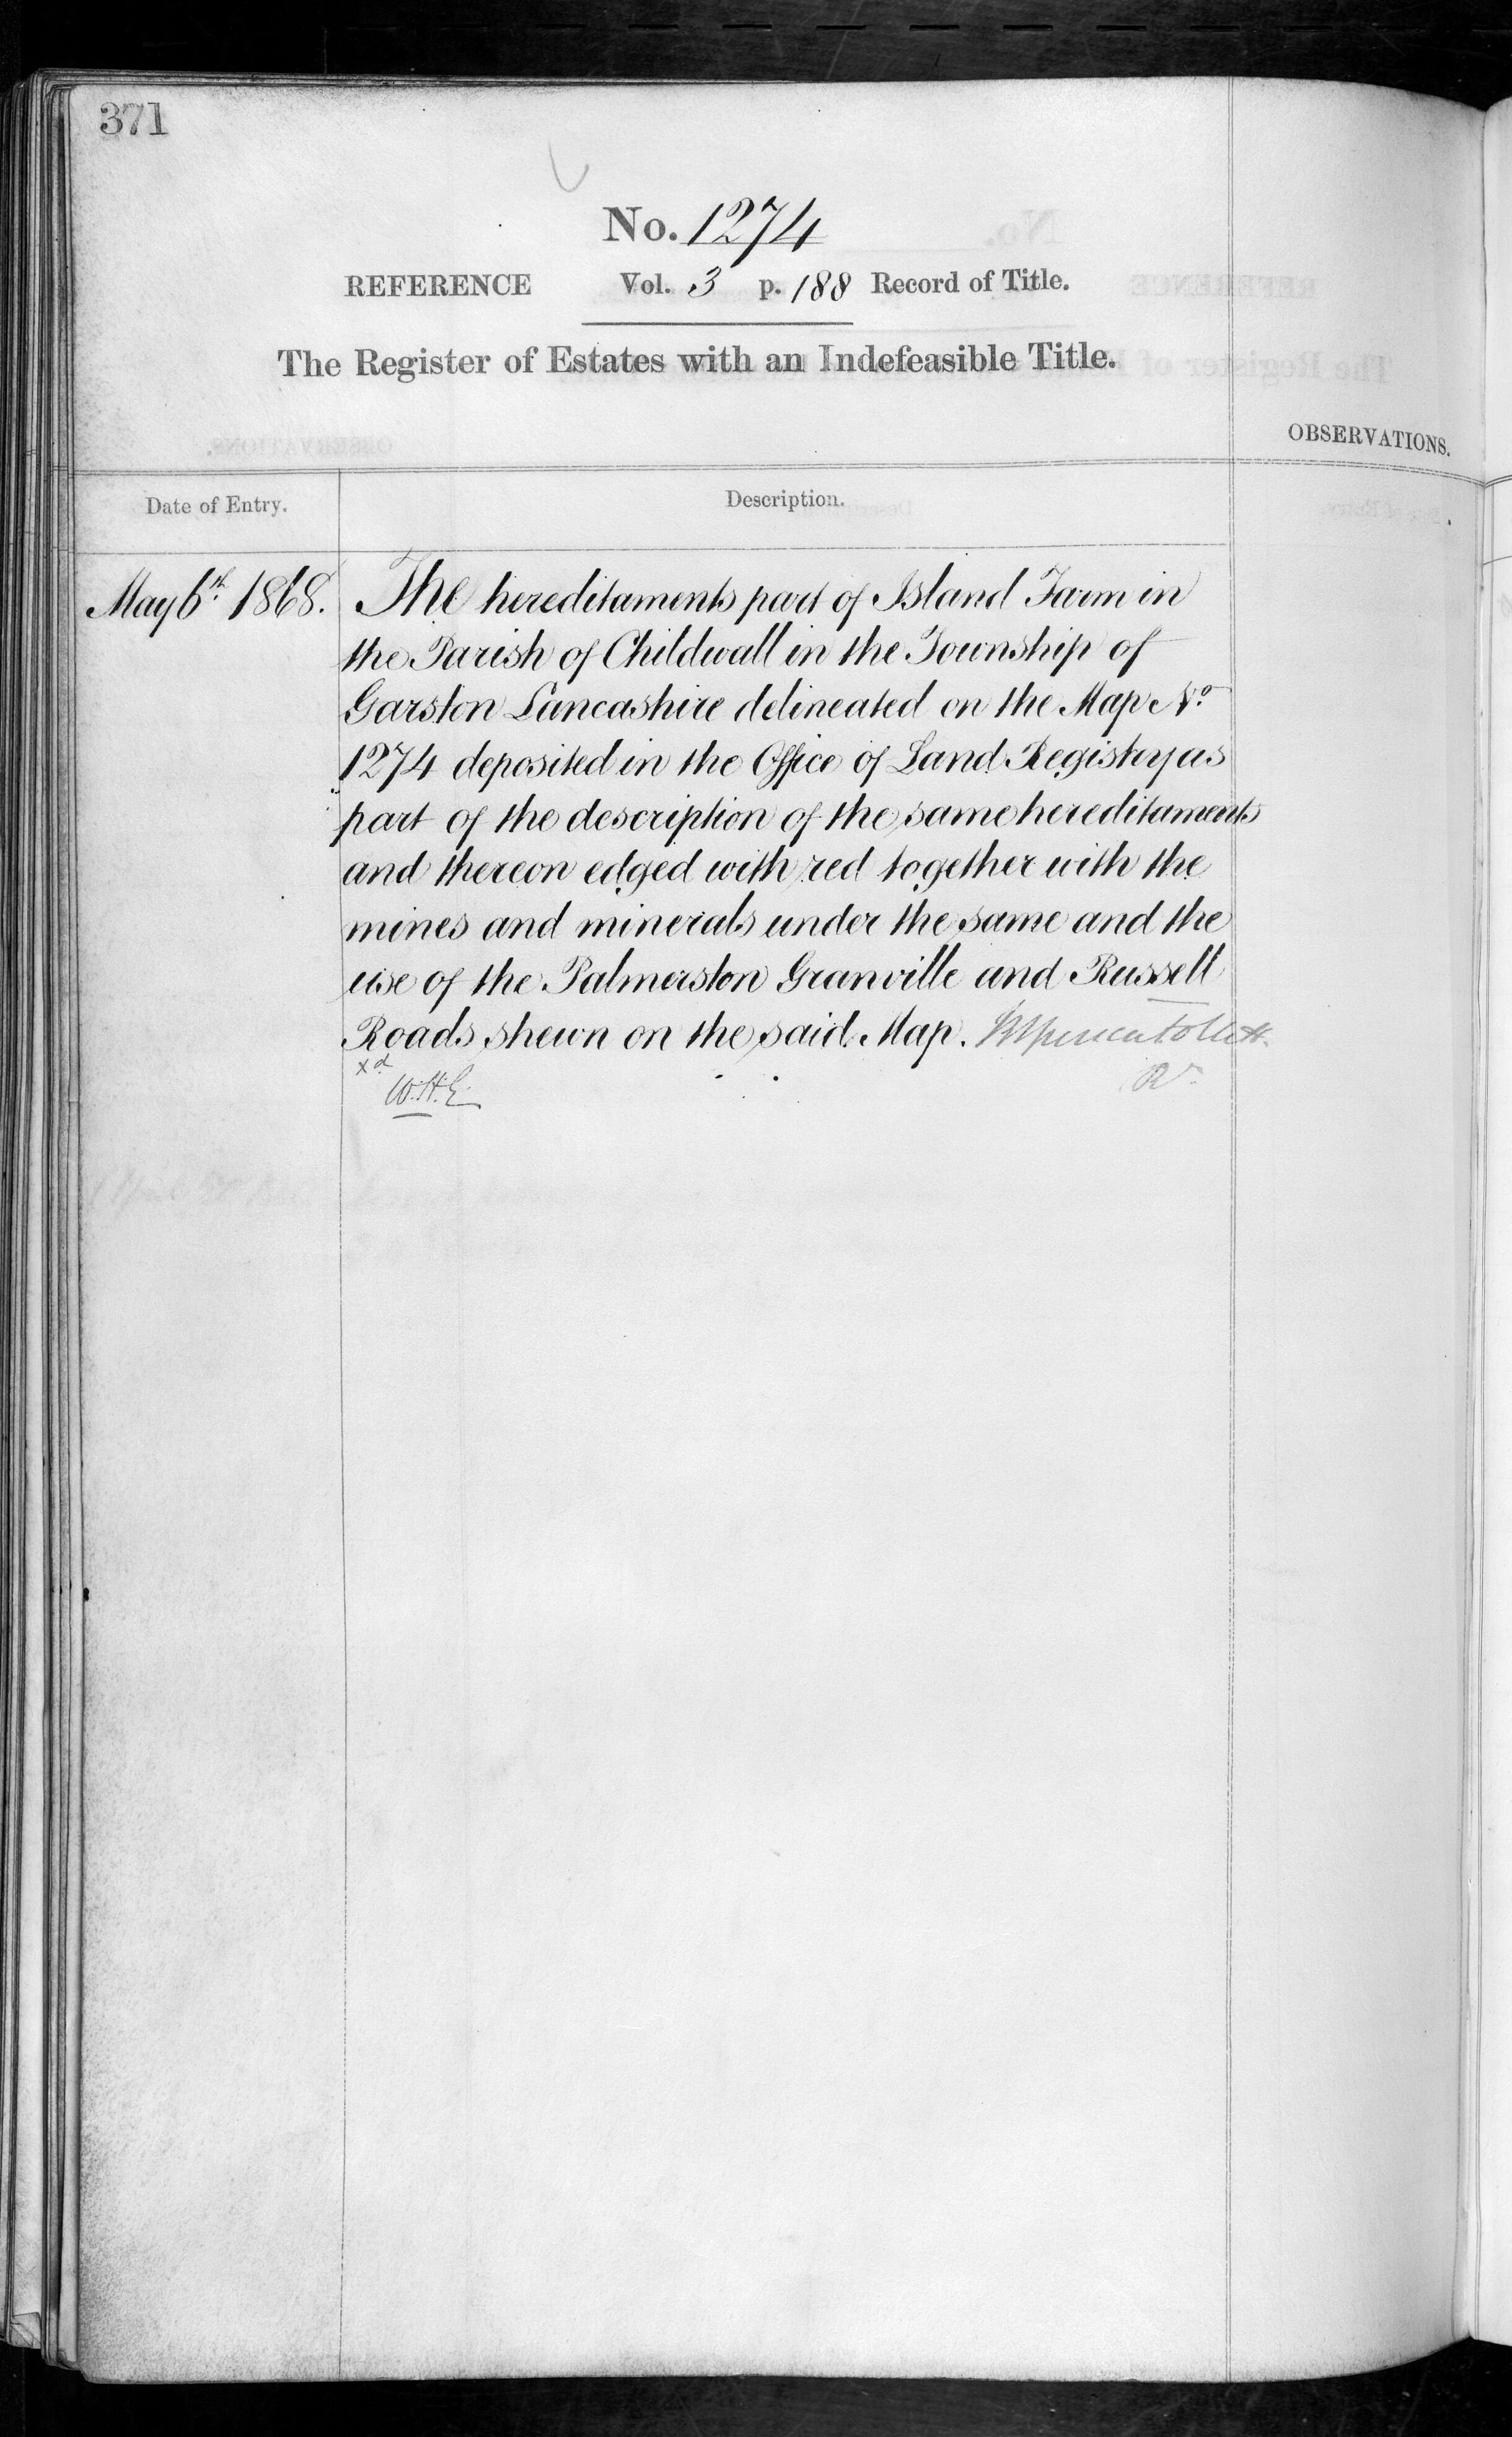 371
No. 1274
REFERENCE Vol. 3 p. 188 Record of Title.
The Register of Estates with an Indefeasible Title.
OBSERVATIONS.
Date of Entry.
Description.
May 6th 1868.
The hereditaments part of Island Farm in
the Parish of Childwall in the Township of
Garston Lancashire delineated on the Map No.
1274 deposited in the Office of Land Registry as
part of the description of the same hereditaments
and thereon edged with red together with the
mines and minerals under the same and the
use of the Palmerston Granville and Russell
Roads shewn on the said Map.
xd
W.H.E.